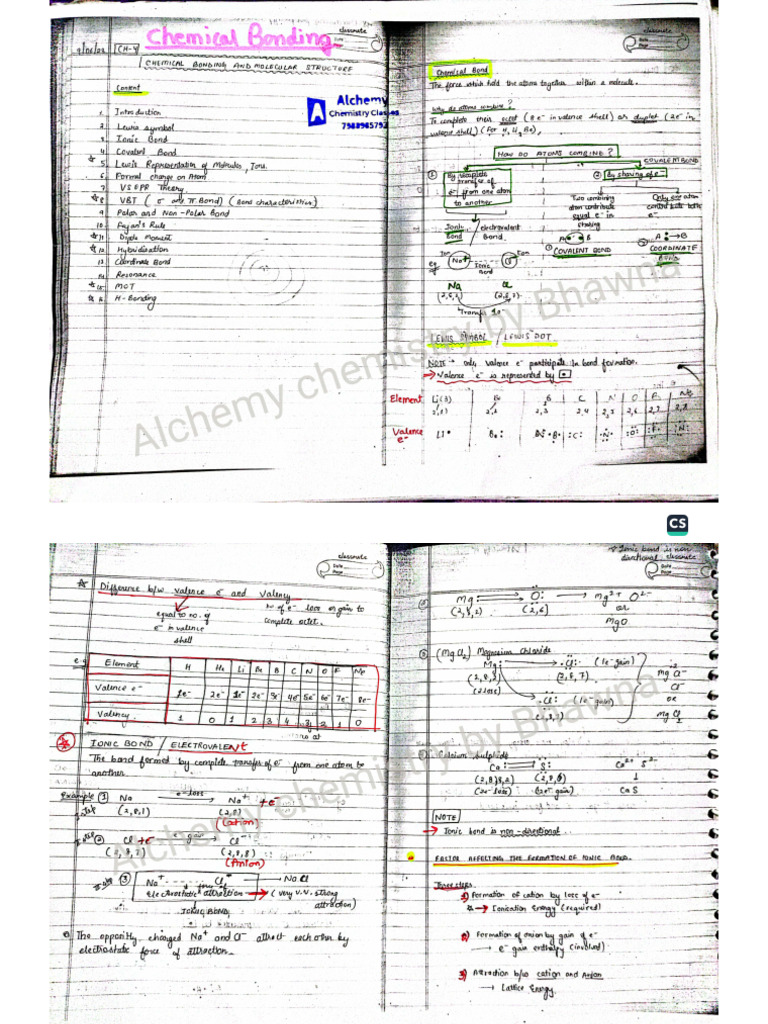 Chemical Bonding
classmate
Date
Page
CH-4
CHEMICAL BONDING AND MOLECULAR STRUCTURE
Content
Alchemy
Chemistry Classes
7988985792
1. Introduction
2 Lewis symbol
3 Ionic Bond
4 Covalent Bond
5 Lewis Representation of Molecules, Ions
6 Formal change on Atom
7 VSEPR Theory
8 VBT ( σ and π Bond) (Bond characteristics)
9 Polar and Non-Polar Bond
10 Fajan's Rule
11 Dipole Moment
12 Hybridization
13 Coordinate Bond
14 Resonance
15 MOT
16 H-Bonding
classmate
Date
Page
Chemical Bond
The force which hold the atoms together within a molecule.
Why do atoms combine?
To complete their octet (8e⁻ in valence shell) or duplet (2e⁻ in
valence shell) (for H, Li, Be),
HOW DO ATOMS COMBINE?
COVALEM BOND
① By complete
transfer of
e⁻ from one atom
to another
② By sharing of e⁻
Two combining
atom contribute
equal e⁻ in
sharing
Only one atom
contribute both
e⁻
Ionic / electrovalent
Bond Bond
A B
① COVALENT BOND
A → B
② COORDINATE
BOND
eg Na⁺ Ionic Bond Cl⁻
Na Cl
(2,8,1) (2,8,7)
Transfer 1e⁻
LEWIS SYMBOL / LEWIS DOT
NOTE → only valence e⁻ participate in bond formation.
→ Valence e⁻ is represented by •
Element Li(3) Be B C N O F Ne
2,1 2,2 2,3 2,4 2,5 2,6 2,7 2,8
Valence e⁻ Li• Be: B• :C: •N• :O: :F• :N:
Alchemy chemistry by Bhawna
CS
classmate
Date
Page
Difference b/w valence e⁻ and Valency
equal to no. of
e⁻ in valence
shell
no of e⁻ loss or gain to
complete octet.
e.g
Element H He Li Be B C N O F Ne
Valence e⁻ 1e⁻ 2e⁻ 1e⁻ 2e⁻ 3e⁻ 4e⁻ 5e⁻ 6e⁻ 7e⁻ 8e⁻
Valency 1 0 1 2 3 4 3 2 1 0
IONIC BOND / ELECTROVALENT
The bond formed by complete transfer of e⁻ from one atom to
another.
Example ① Na e⁻ loss → Na⁺ + e⁻
(2,8,1) (2,8)
(Cation)
② Cl + e⁻ e⁻ gain → Cl⁻
(2,8,7) (2,8,8)
(Anion)
③ Na⁺ Cl⁻ → NaCl
Electrostatic force of attraction → (very v.v. strong
attraction)
IONIC BOND
The oppositly charged Na⁺ and Cl⁻ attract each other by
electrostatic force of attraction.
Ionic bond is non
directional
classmate
Date
Page
Mg: → O: → Mg²⁺ O²⁻
(2,8,2) (2,6) or
MgO
③ (MgCl₂) Magnesium Chloride
Mg: → Cl: (1e⁻ gain) Mg⁺²
(2,8,2) (2,8,7) Cl⁻
(2 loss) Cl⁻
Cl: (1e⁻ gain) or
(2,8,7) MgCl₂
Calcium sulphide
Ca: S: Ca²⁺ S²⁻
(2,8,8,2) (2,8,6) ↓
(2e⁻ loss) (2e⁻ gain) CaS
NOTE
→ Ionic bond is non-directional
FACTOR AFFECTING THE FORMATION OF IONIC BOND.
Three steps
1) Formation of cation by loss of e⁻
→ Ionization Energy (required)
2) Formation of anion by gain of e⁻
→ e⁻ gain enthalpy (involved)
3) Attraction b/w cation and Anion
→ Lattice Energy.
Alchemy chemistry by Bhawna